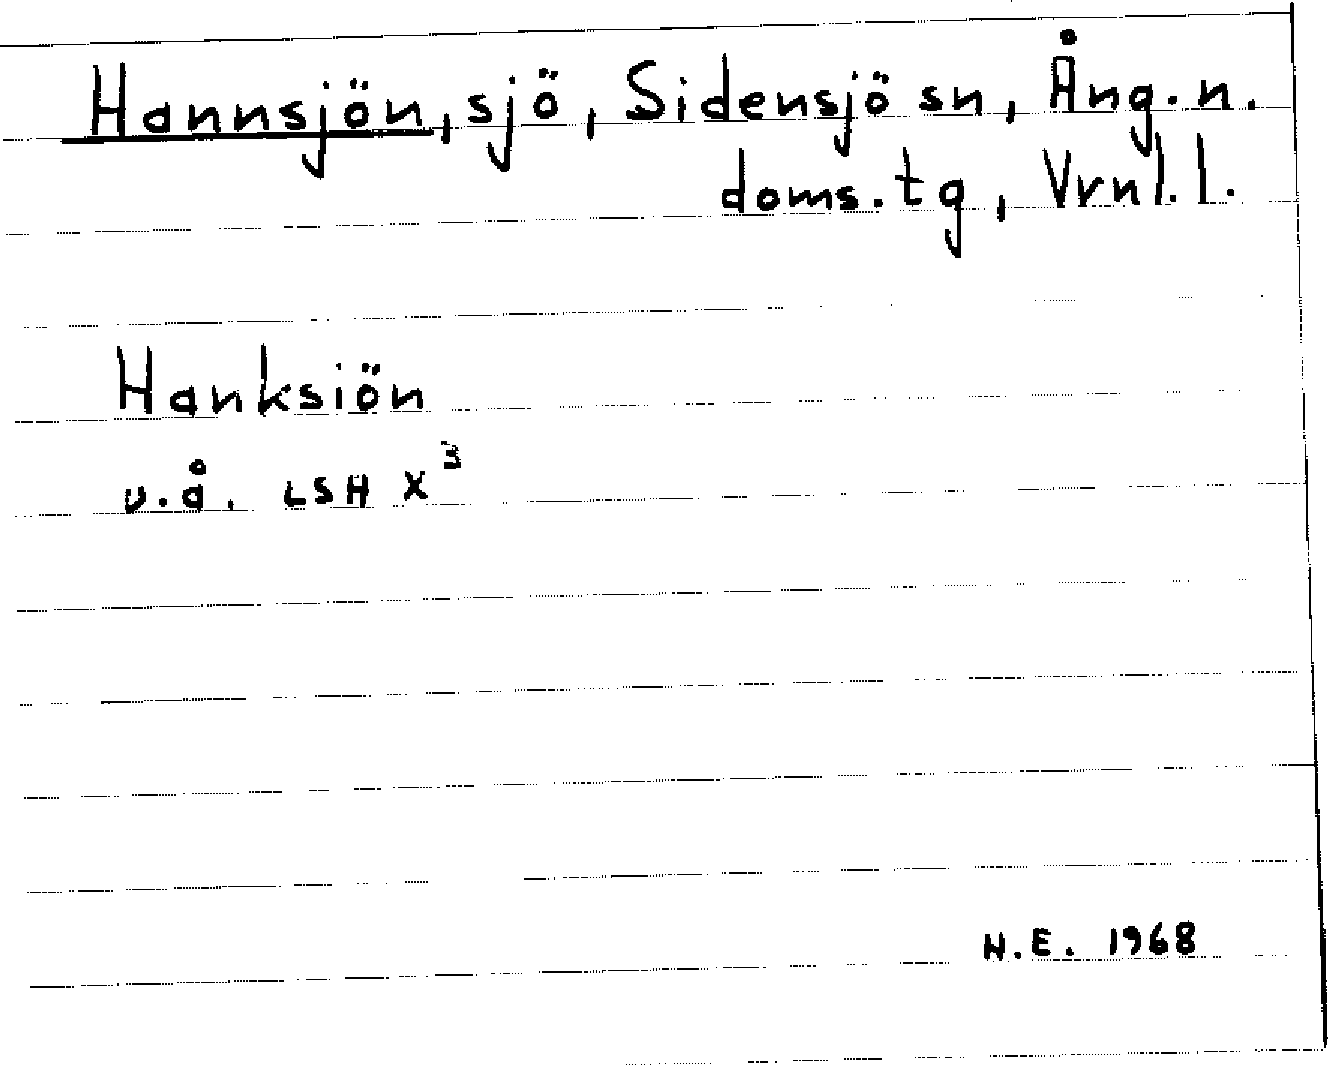 Hannsjön, sjö, Sidensjö sn, Ång. n.
doms. tg, Vrnl. l.
Hanksiön
u. å. LSH X³
H. E. 1968